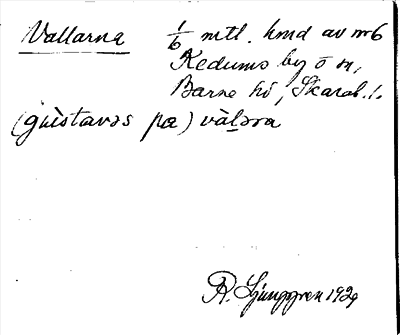 Vallarna 1/6 mtl. hmd av nr 6
Kedums by o m,
Barne hd, Skarab. l.
(gùstavəs pɑ) vàḷəra
R. Ljunggren 1929